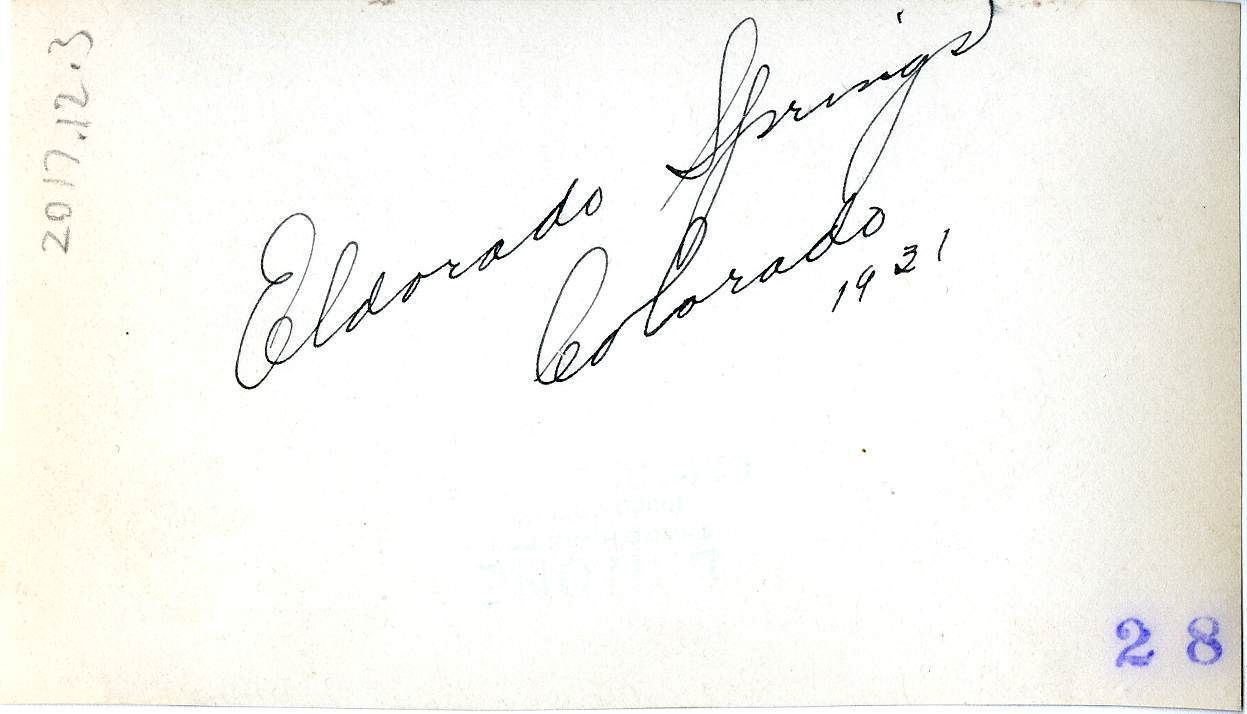 2017.12.3
Eldorado Springs
Colorado
1931
28